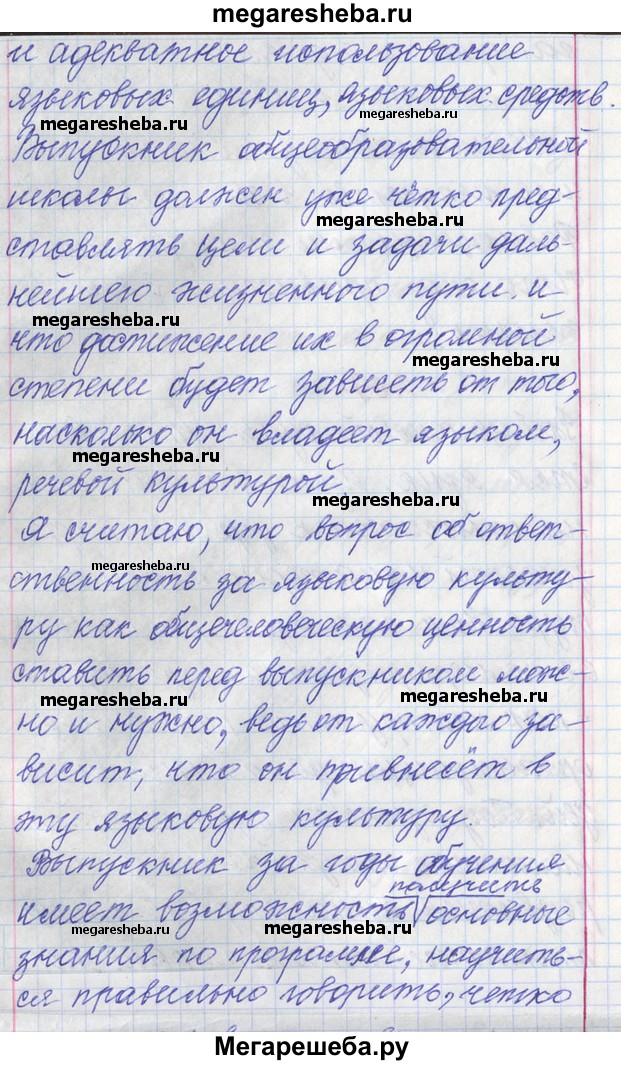 megaresheba.ru
и адекватное использование
языковых единиц, языковых средств.
megaresheba.ru megaresheba.ru
Выпускник общеобразовательной
школы должен уже чётко пред-
megaresheba.ru
ставлять цели и задачи даль-
нейшего жизненного пути. и
megaresheba.ru
что достижение их в огромной
megaresheba.ru
степени будет зависеть от того,
насколько он владеет языком,
megaresheba.ru
речевой культурой.
Я считаю, что вопрос об ответ-
megaresheba.ru megaresheba.ru
ственность за языковую культу-
ру как общечеловеческую ценность
ставить перед выпускником мож-
megaresheba.ru megaresheba.ru
но и нужно, ведь от каждого за-
висит, что он привнесёт в
эту языковую культуру.
Выпускник за годы обучения
получить
имеет возможность основные
megaresheba.ru megaresheba.ru
знания по программе, научить-
ся правильно говорить, четко
Мегарешеба.ру